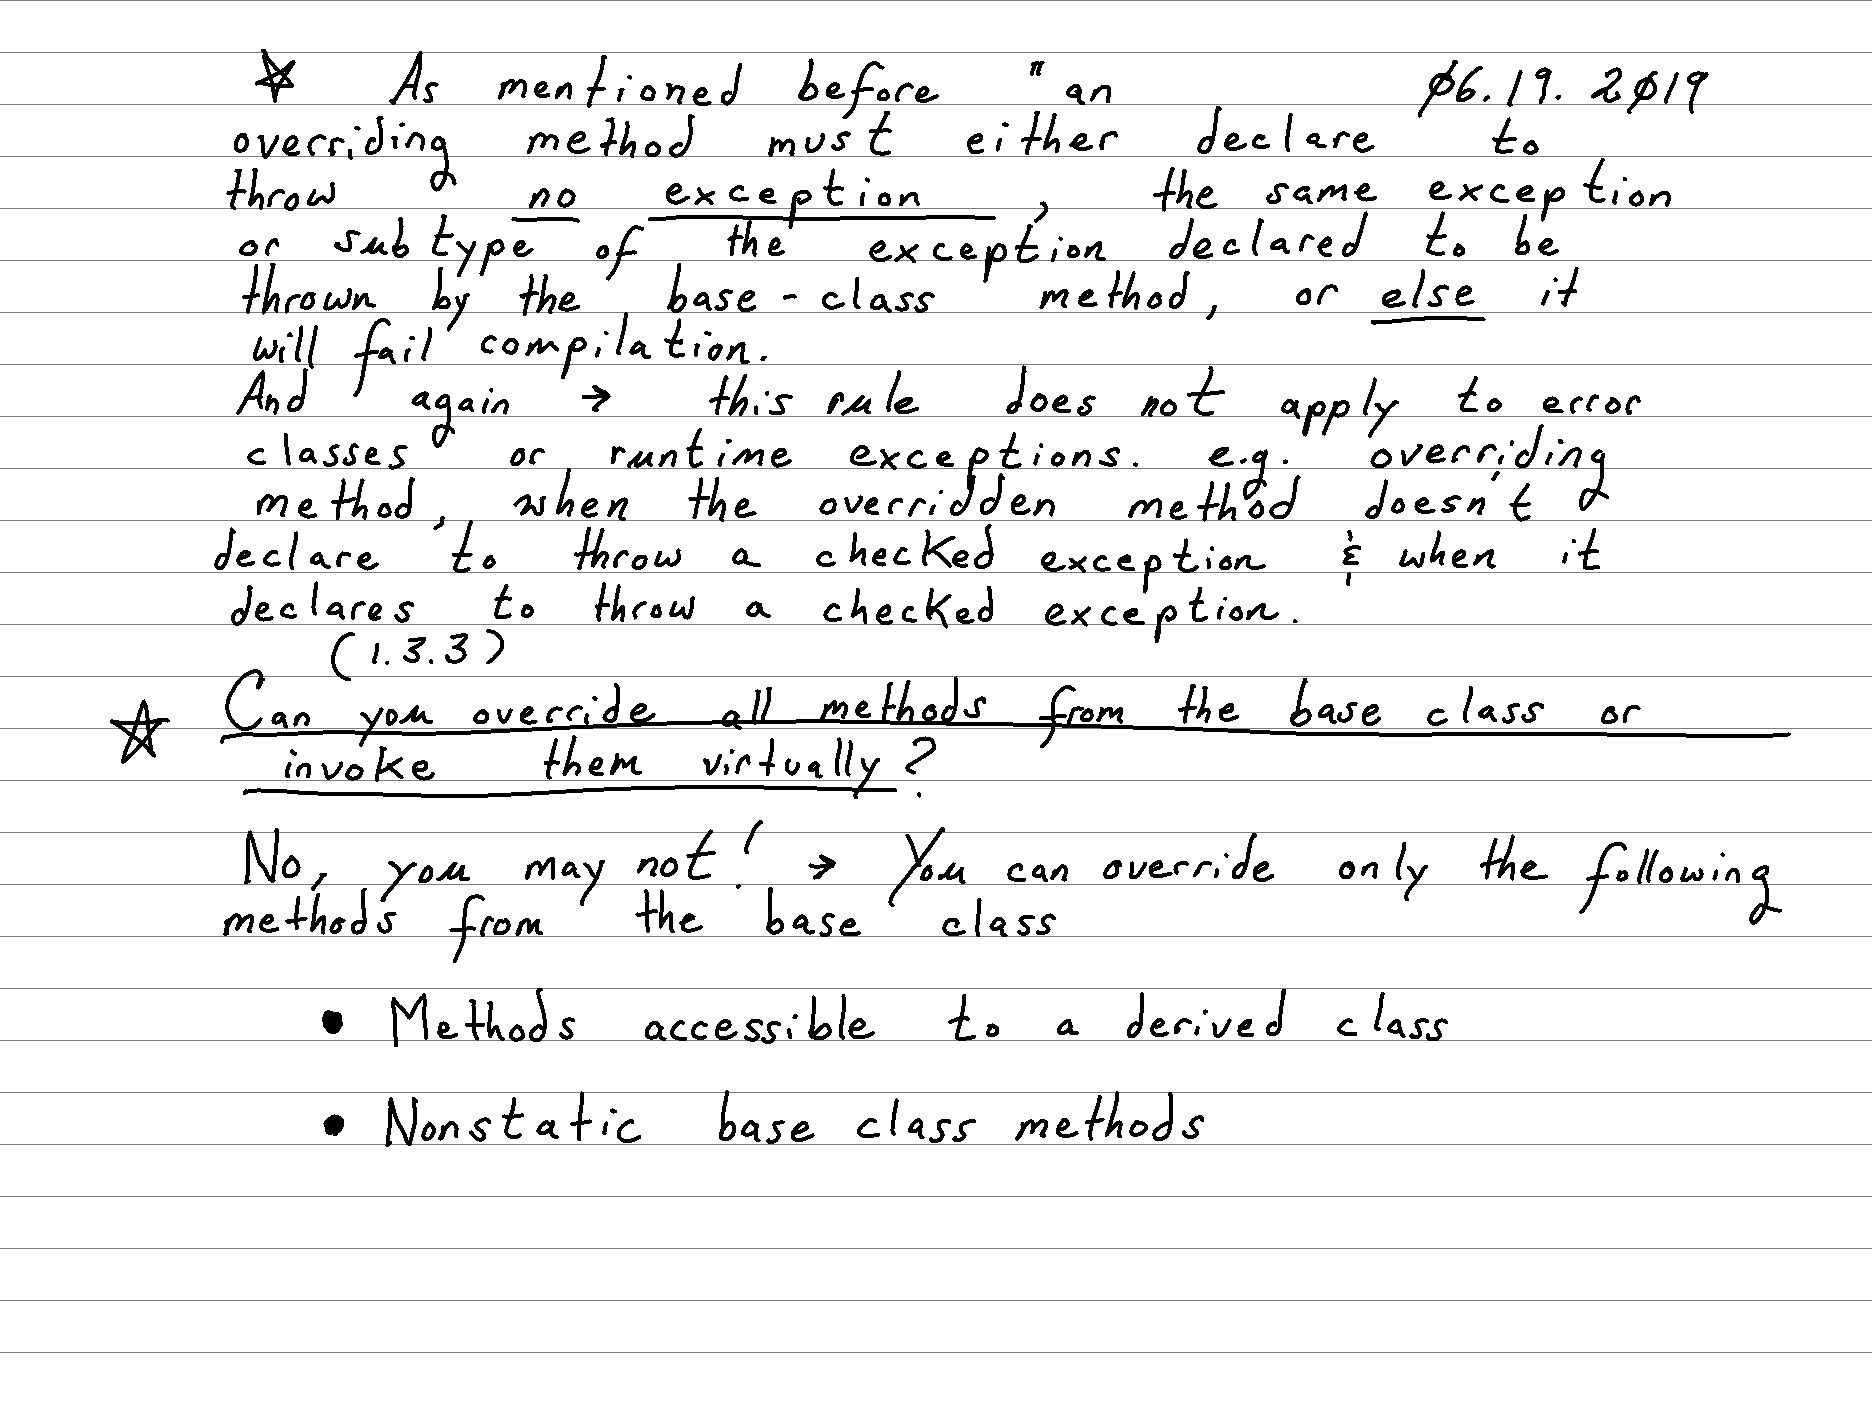 ☆ As mentioned before "an 06.19.2019
overriding method must either declare to
throw no exception, the same exception
or subtype of the exception declared to be
thrown by the base-class method, or else it
will fail compilation.
And again → this rule does not apply to error
classes or runtime exceptions. e.g. overriding
method, when the overridden method doesn't
declare to throw a checked exception & when it
declares to throw a checked exception.
(1.3.3)
☆ Can you override all methods from the base class or
invoke them virtually?
No, you may not! → You can override only the following
methods from the base class
• Methods accessible to a derived class
• Nonstatic base class methods